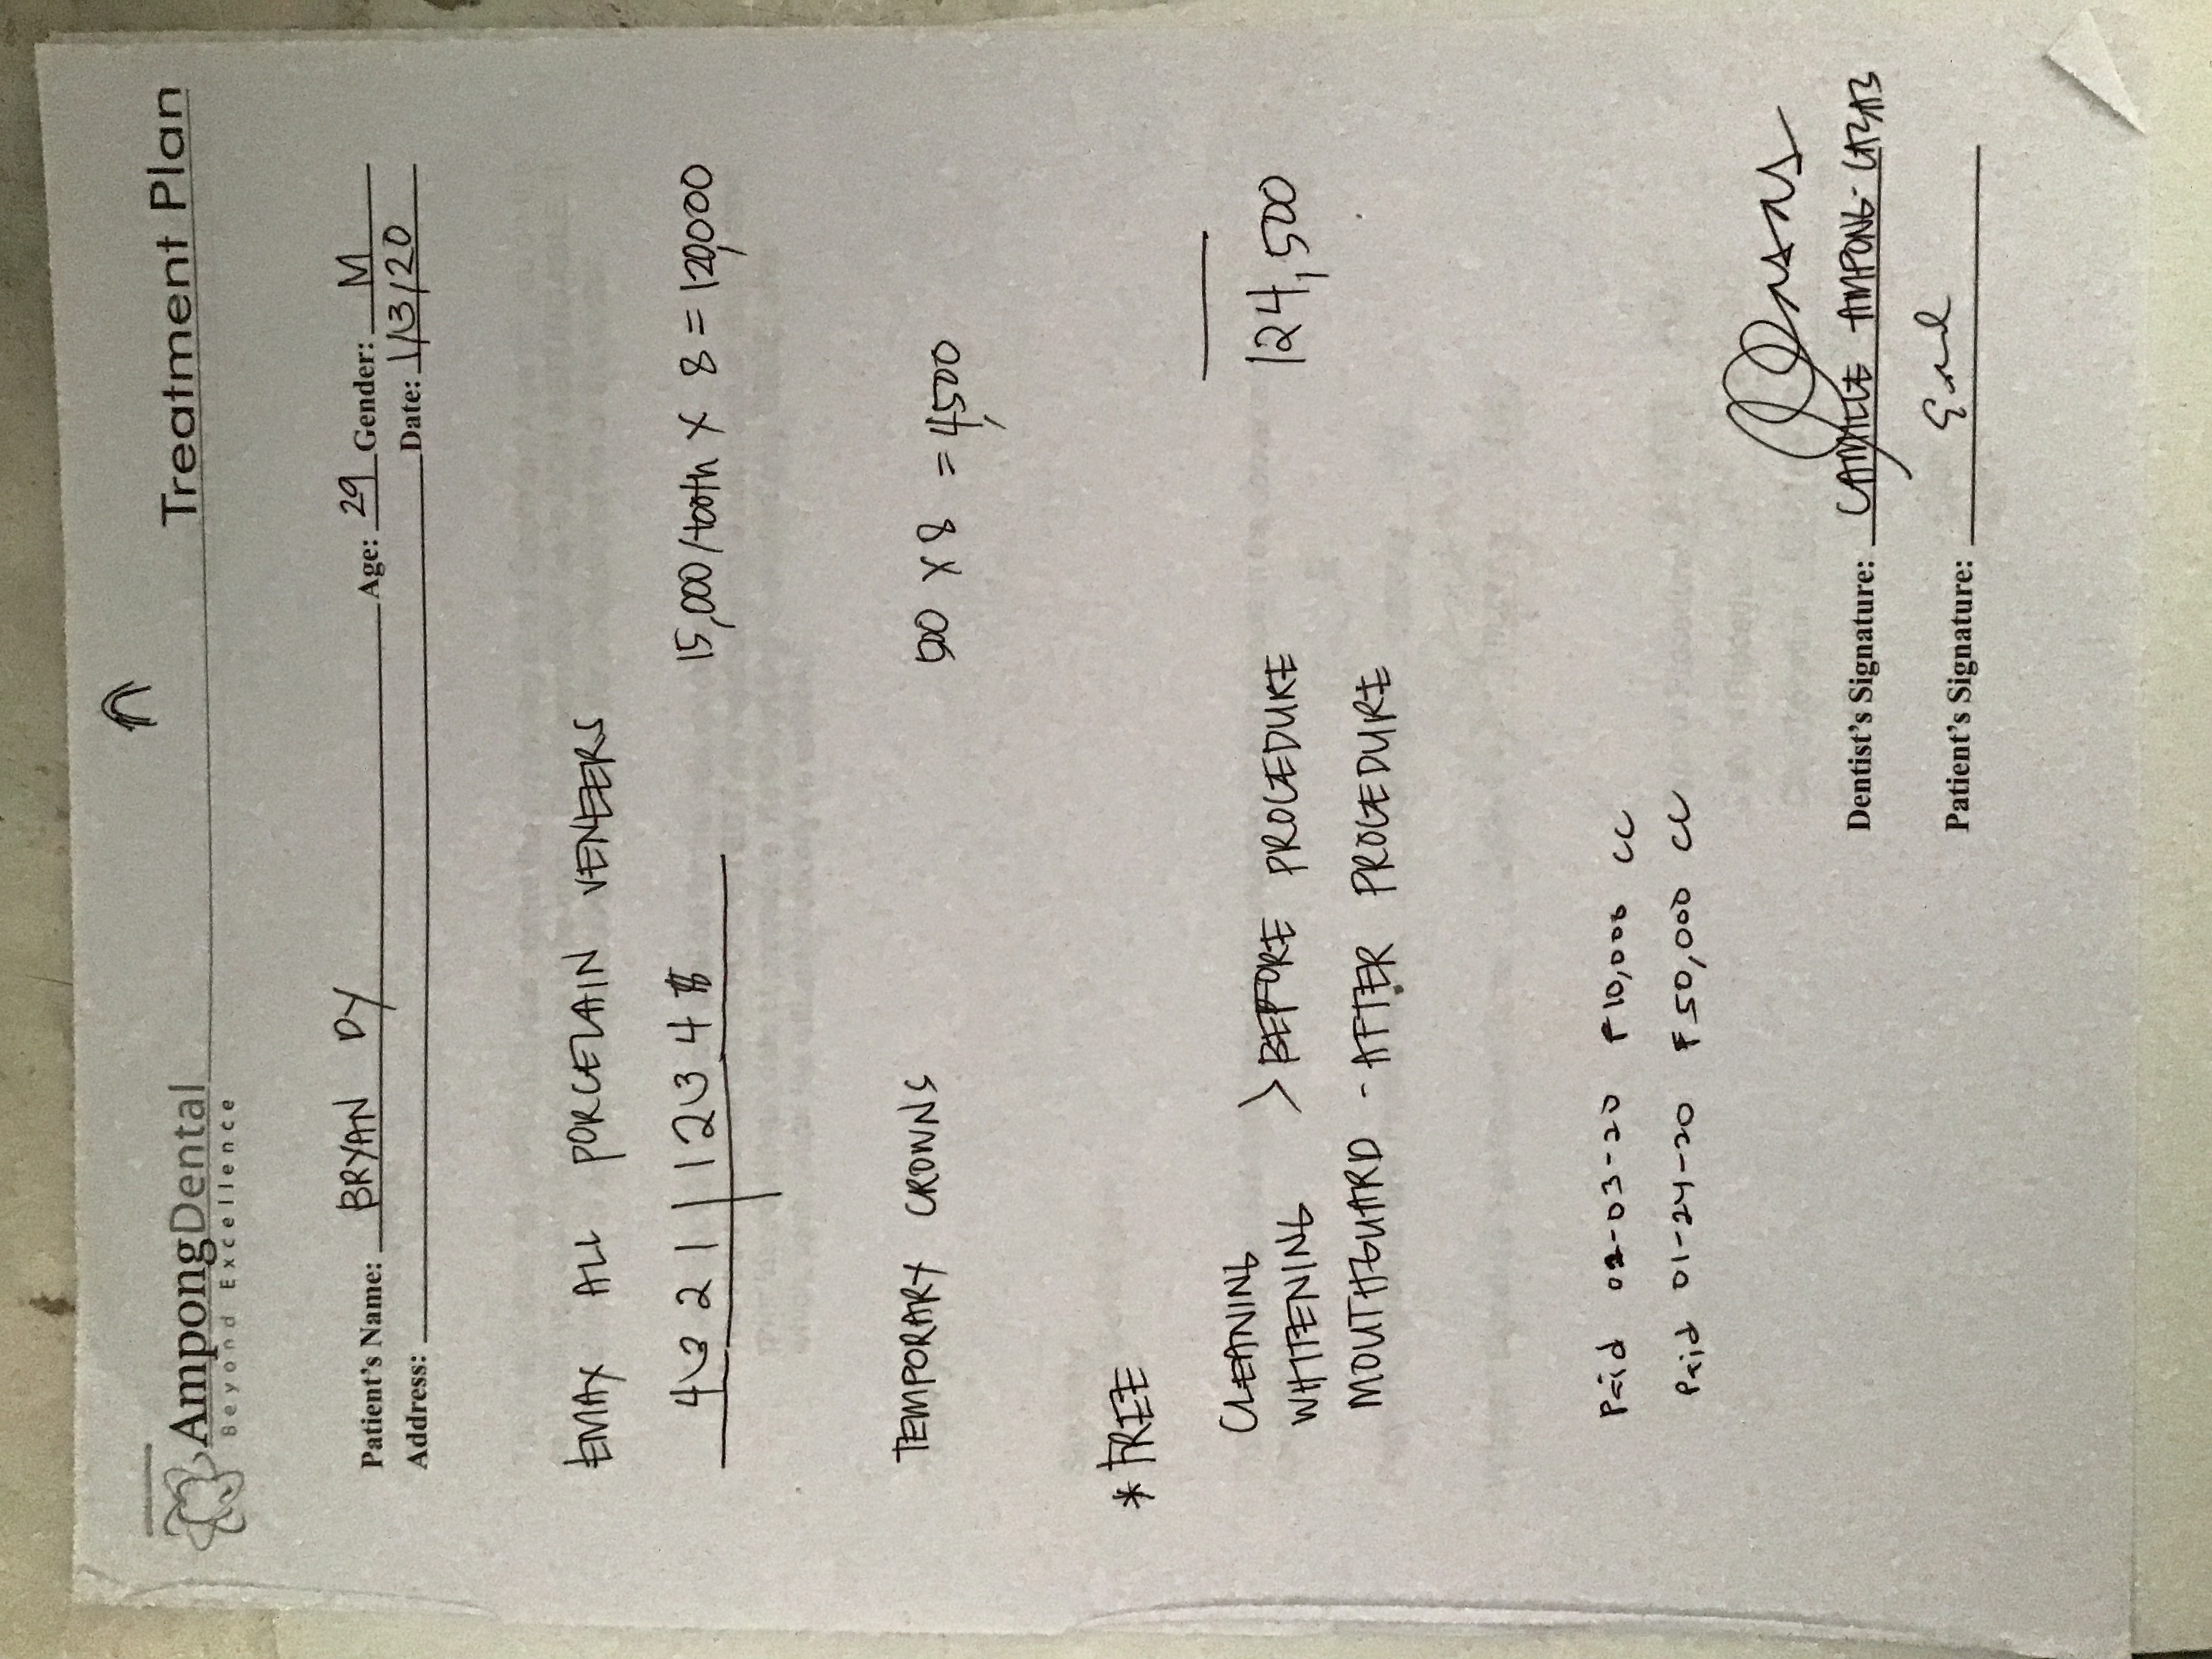 AmpongDental Treatment Plan
Beyond Excellence
Patient's Name: BRYAN DY Age: 29 Gender: M
Address: Date: 1/13/20
EMAX ALL PORCELAIN VENEERS
4 3 2 1 | 1 2 3 4 15,000/tooth X 8 = 120,000
TEMPORARY CROWNS 500 X 8 = 4,500
* FREE
CLEANING
WHITENING > BEFORE PROCEDURE 124,500
MOUTHGUARD - AFTER PROCEDURE
Paid 02-03-20 ₱10,000 CC
Paid 01-24-20 ₱50,000 CC
Dentist's Signature: CAMILLE AMPONG-
Patient's Signature: